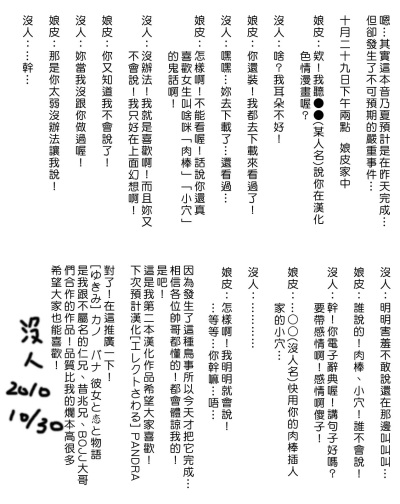 嗯…其實這本音乃夏預計是在昨天完成…
但卻發生了不可預期的嚴重事件…
十月二十九日下午兩點　娘皮家中
娘皮：欸！我聽●●(某人名)說你在漢化
色情漫畫喔？
沒人：啥？我耳朵不好！
娘皮：你還裝！我都去下載來看過了！
沒人：嘿嘿…妳去下載了…還看過…
娘皮：怎樣啊！不能看喔！話說你還真
喜歡女生叫啥咪「肉棒」「小穴」
的鬼話啊！
沒人：沒辦法！我就是喜歡啊！而且妳又
不會說！我只好在上面幻想啊！
娘皮：你又知道我不會說了！
沒人：妳當我沒跟你做過喔！
娘皮：那是你太弱沒辦法讓我說！
沒人：…幹…
沒人：明明害羞不敢說還在那邊叫叫叫…
娘皮：誰說的！肉棒、小穴！誰不會說！
沒人：幹！你電子辭典喔！講句子好嗎？
要帶感情啊！感情啊傻子！
娘皮：…○○(沒人名)快用你的肉棒插人
家的小穴…
沒人：…………
娘皮：怎樣啊！我明明就會說！
…等等…你幹嘛…唔…
因為發生了這種鳥事所以今天才把它完成…
相信各位帥哥都懂的！都會體諒我的！
是吧！
這是我第二本漢化作品希望大家喜歡！
下次預計漢化[エレクトさわる] PANDRA
對了！在這推廣一下！
[ゆきみ] カノ　バナ 彼女と恋と物語
是我跟不屬名的仁兄、昔兆兄、BOJ大哥
們合作的作品！品質比我的爛本高很多
希望大家也能喜歡！
沒人
2010
10/30